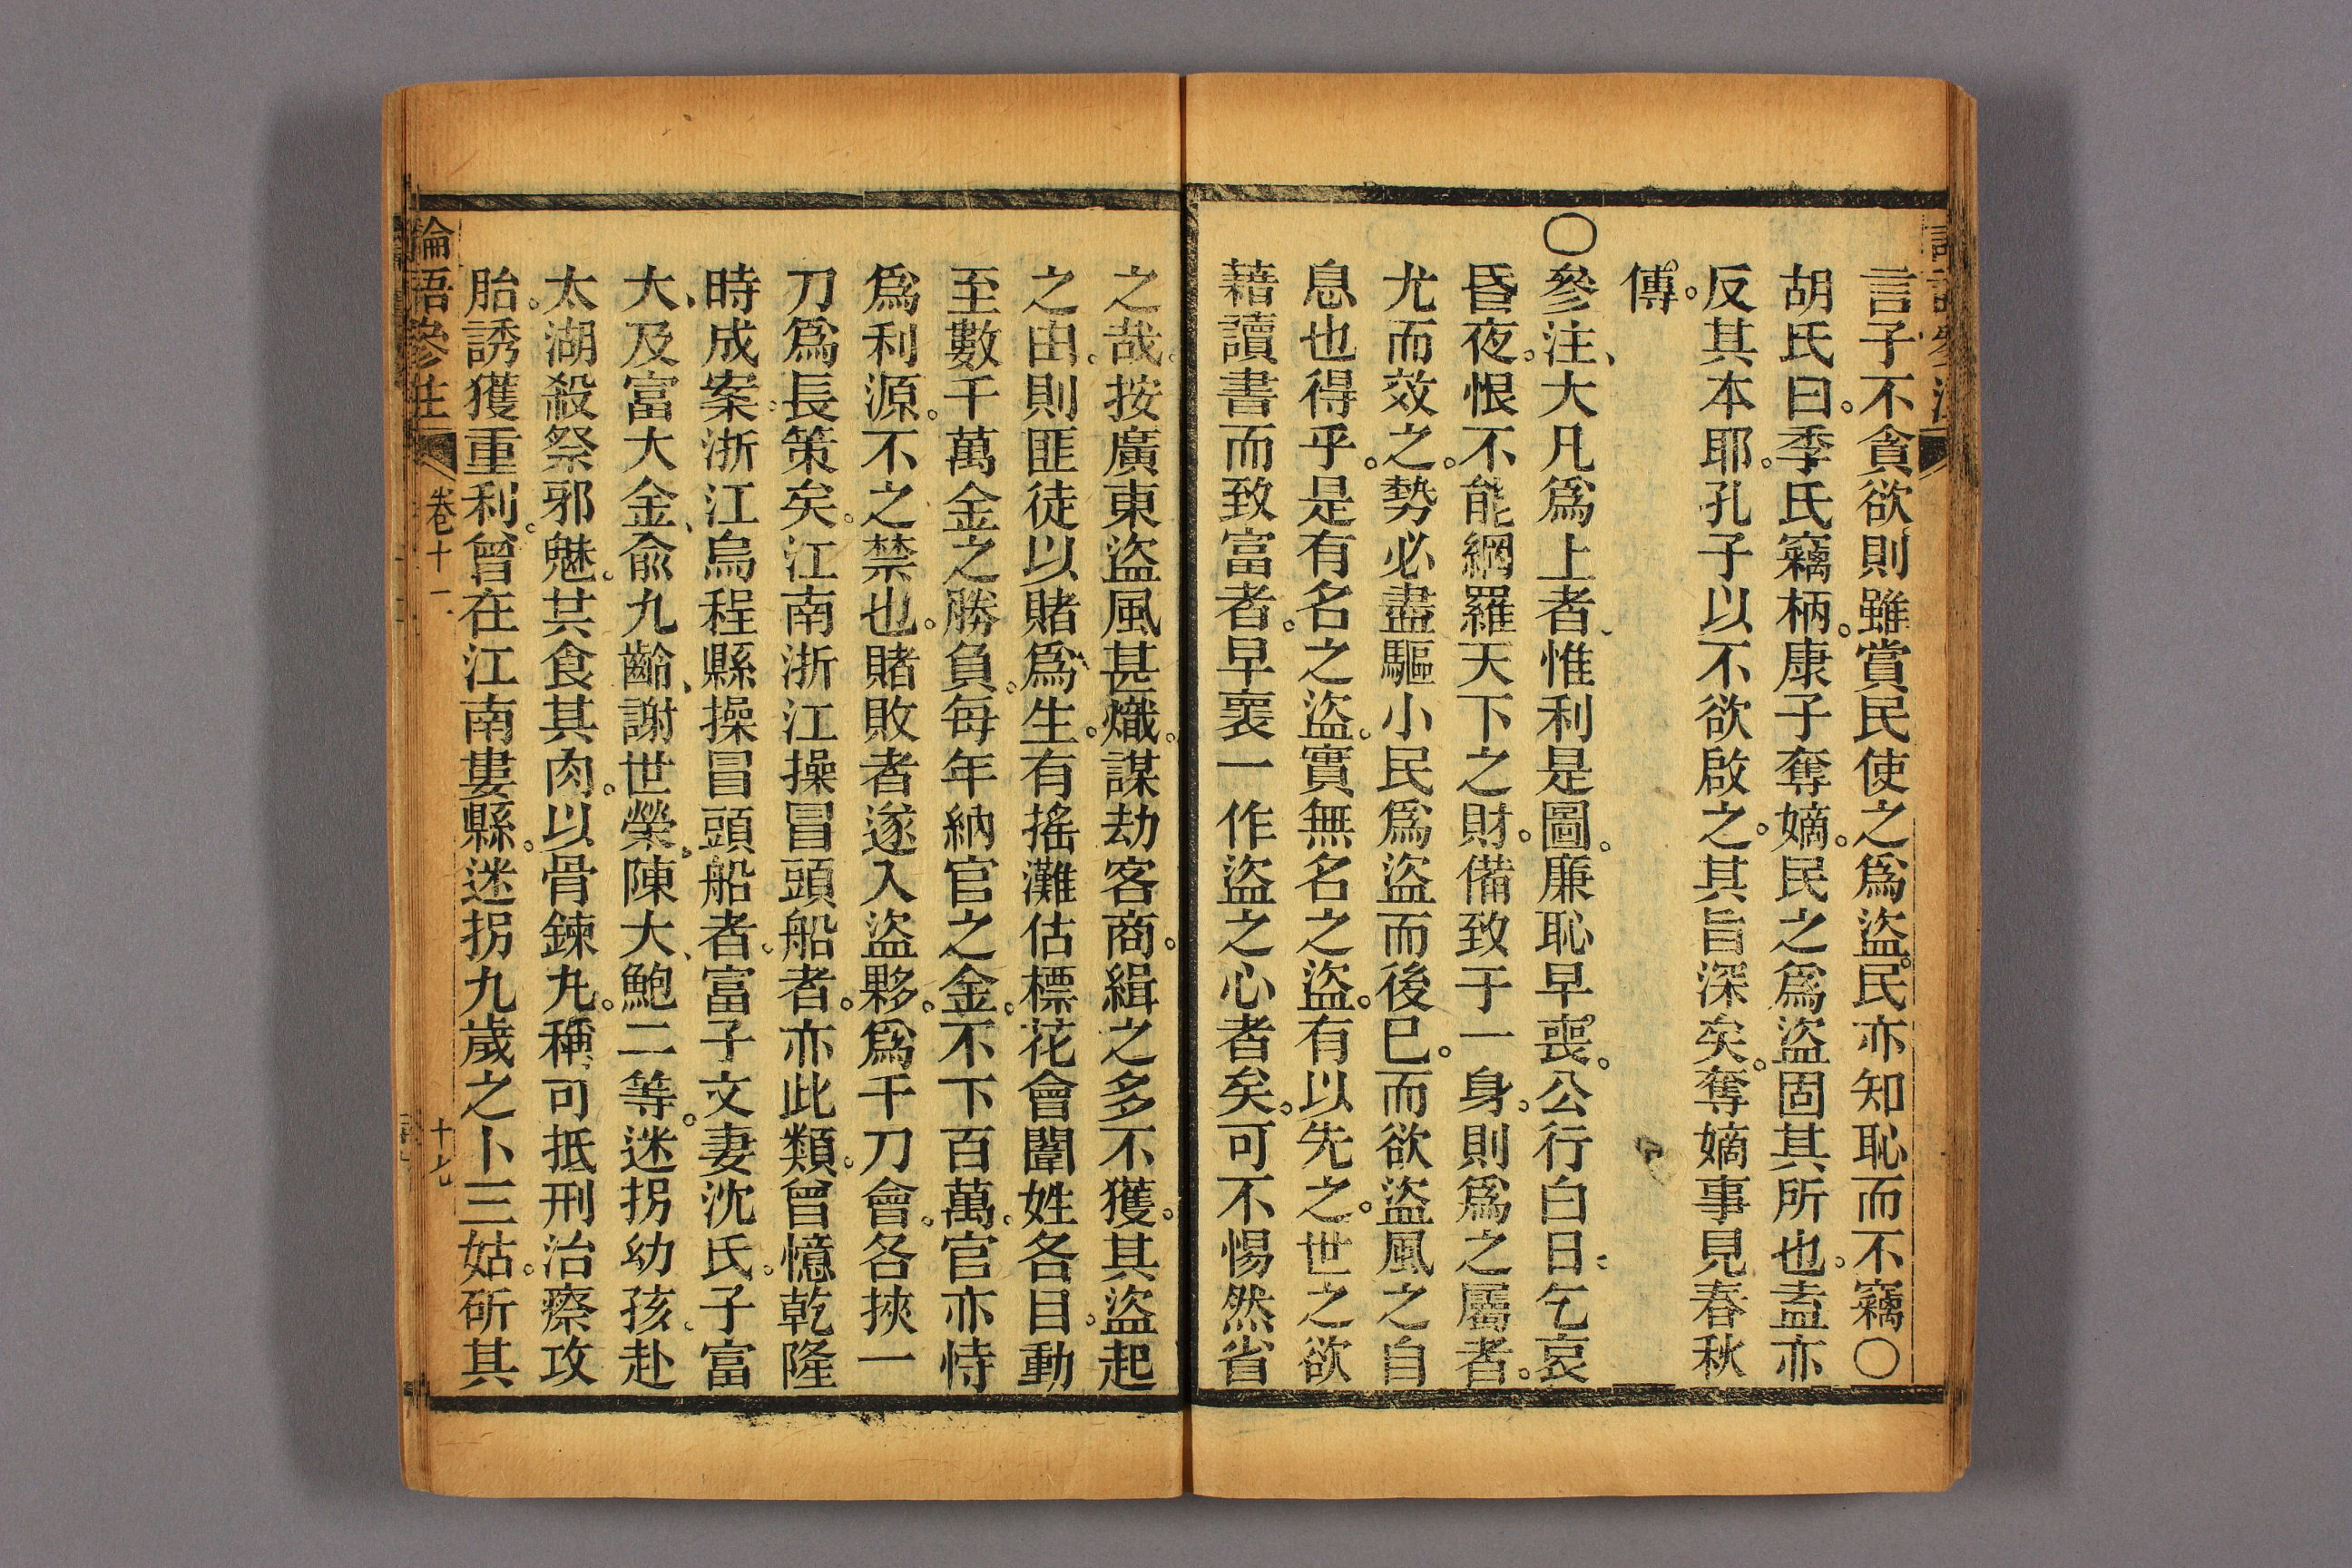 言子不貪欲則雖賞民使之爲盜。民亦知恥而不竊○
胡氏曰。季氏竊柄。康子奪嫡。民之爲盜固其所也。盍亦
反其本耶。孔子以不欲啟之。其旨深矣。奪嫡事見春秋
傳。
○參注、大凡爲上者、惟利是圖。廉恥早喪。公行白日。乞哀
昏夜。恨不能網羅天下之財。備致于一身。則爲之屬者。
尤而效之。勢必盡驅小民爲盜而後已。而欲盜風之自
息也得乎。是有名之盜。實無名之盜。有以先之。世之欲
藉讀書而致富者。早裹一作盜之心者矣。可不惕然省
之哉。按廣東盜風甚熾。謀劫客商。緝之多不獲。其盜起
之由。則匪徒以賭爲生。有搖灘估標花會闈姓各目。動
至數千萬金之勝負。每年納官之金。不下百萬。官亦恃
爲利源。不之禁也。賭敗者遂入盜夥。爲千刀會。各挾一
刀爲長策矣。江南浙江操冒頭船者。亦此類。曾憶乾隆
時成案。浙江烏程縣操冒頭船者。富子文妻沈氏。子富
大、及富大金、俞九齡、謝世榮、陳大、鮑二等。迷拐幼孩。赴
太湖殺祭邪魅。其食其肉。以骨鍊丸。稱可抵刑治瘵攻
胎。誘獲重利。曾在江南婁縣。迷拐九歲之卜三姑。斫其
論語參注
卷十一
十七